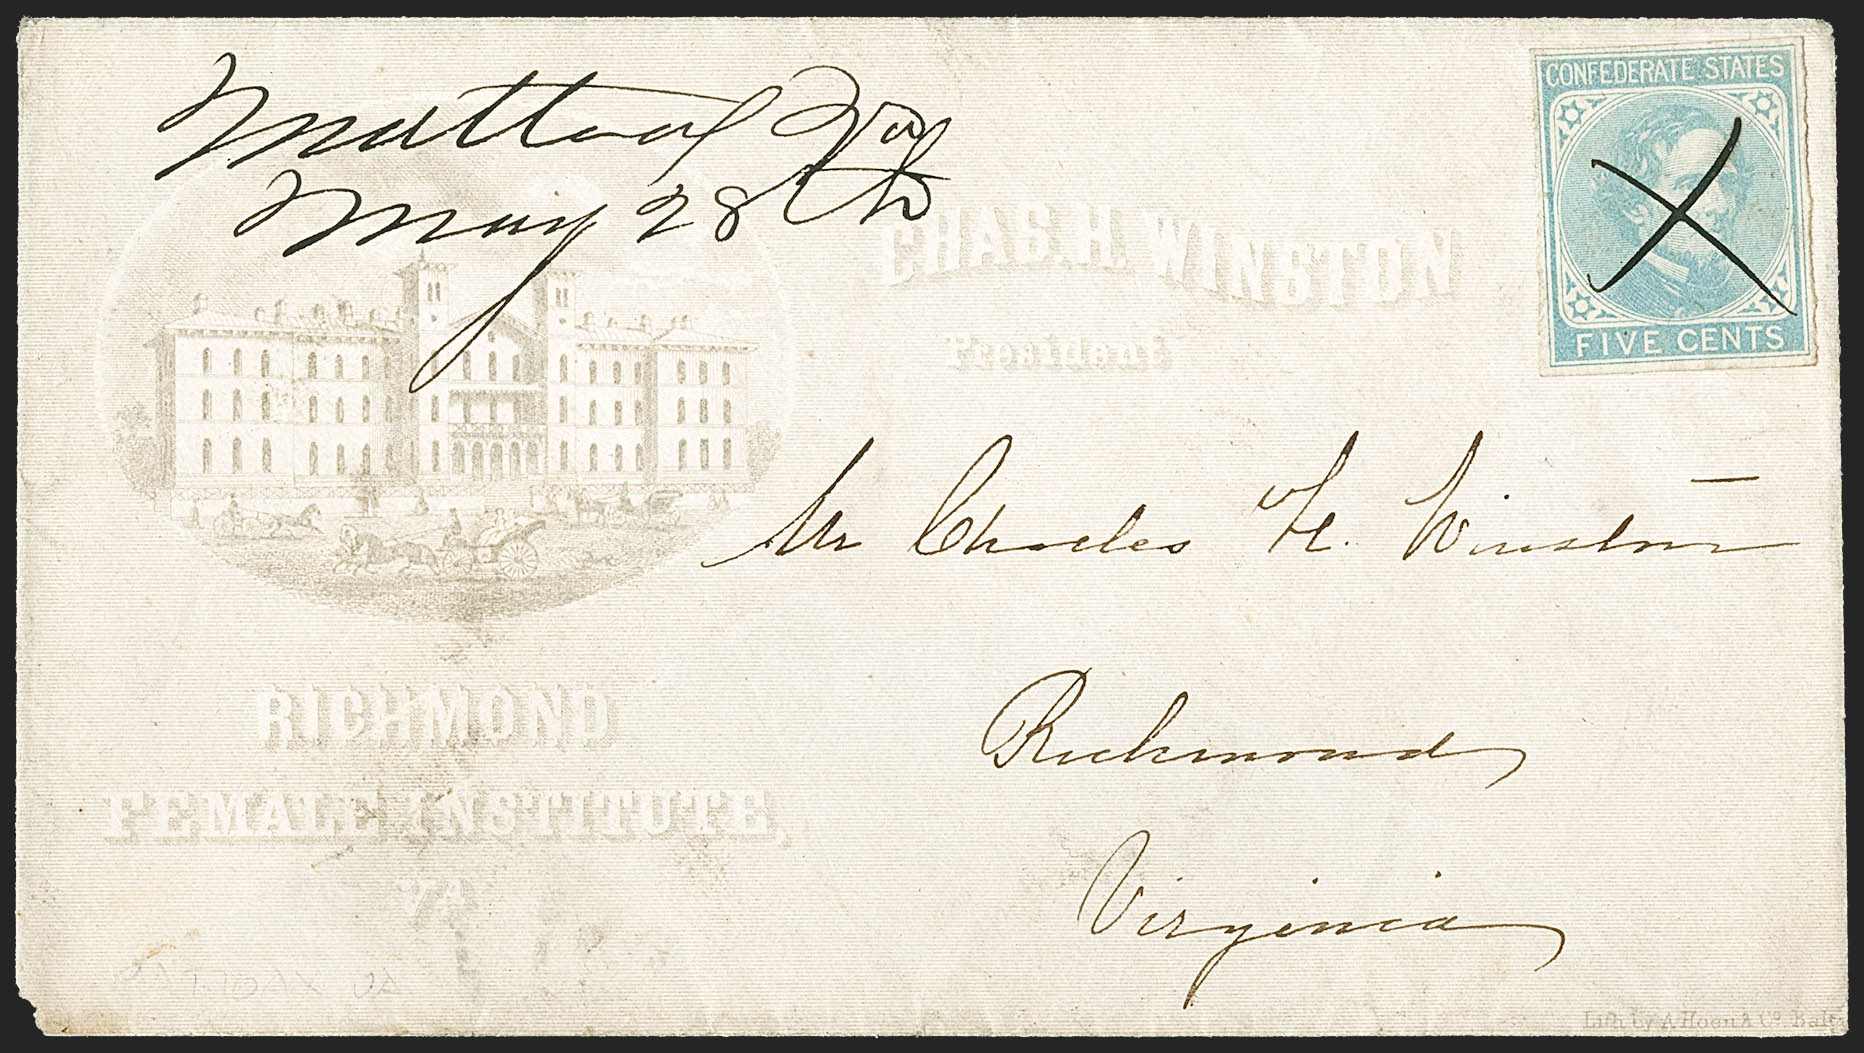 Mattoax Va
May 28th
CONFEDERATE STATES
FIVE CENTS
CHAS. H. WINSTON
President
Mr Charles H. Winston
Richmond
Virginia
RICHMOND
FEMALE INSTITUTE,
VA
Lith. by A. Hoen & Co. Balto